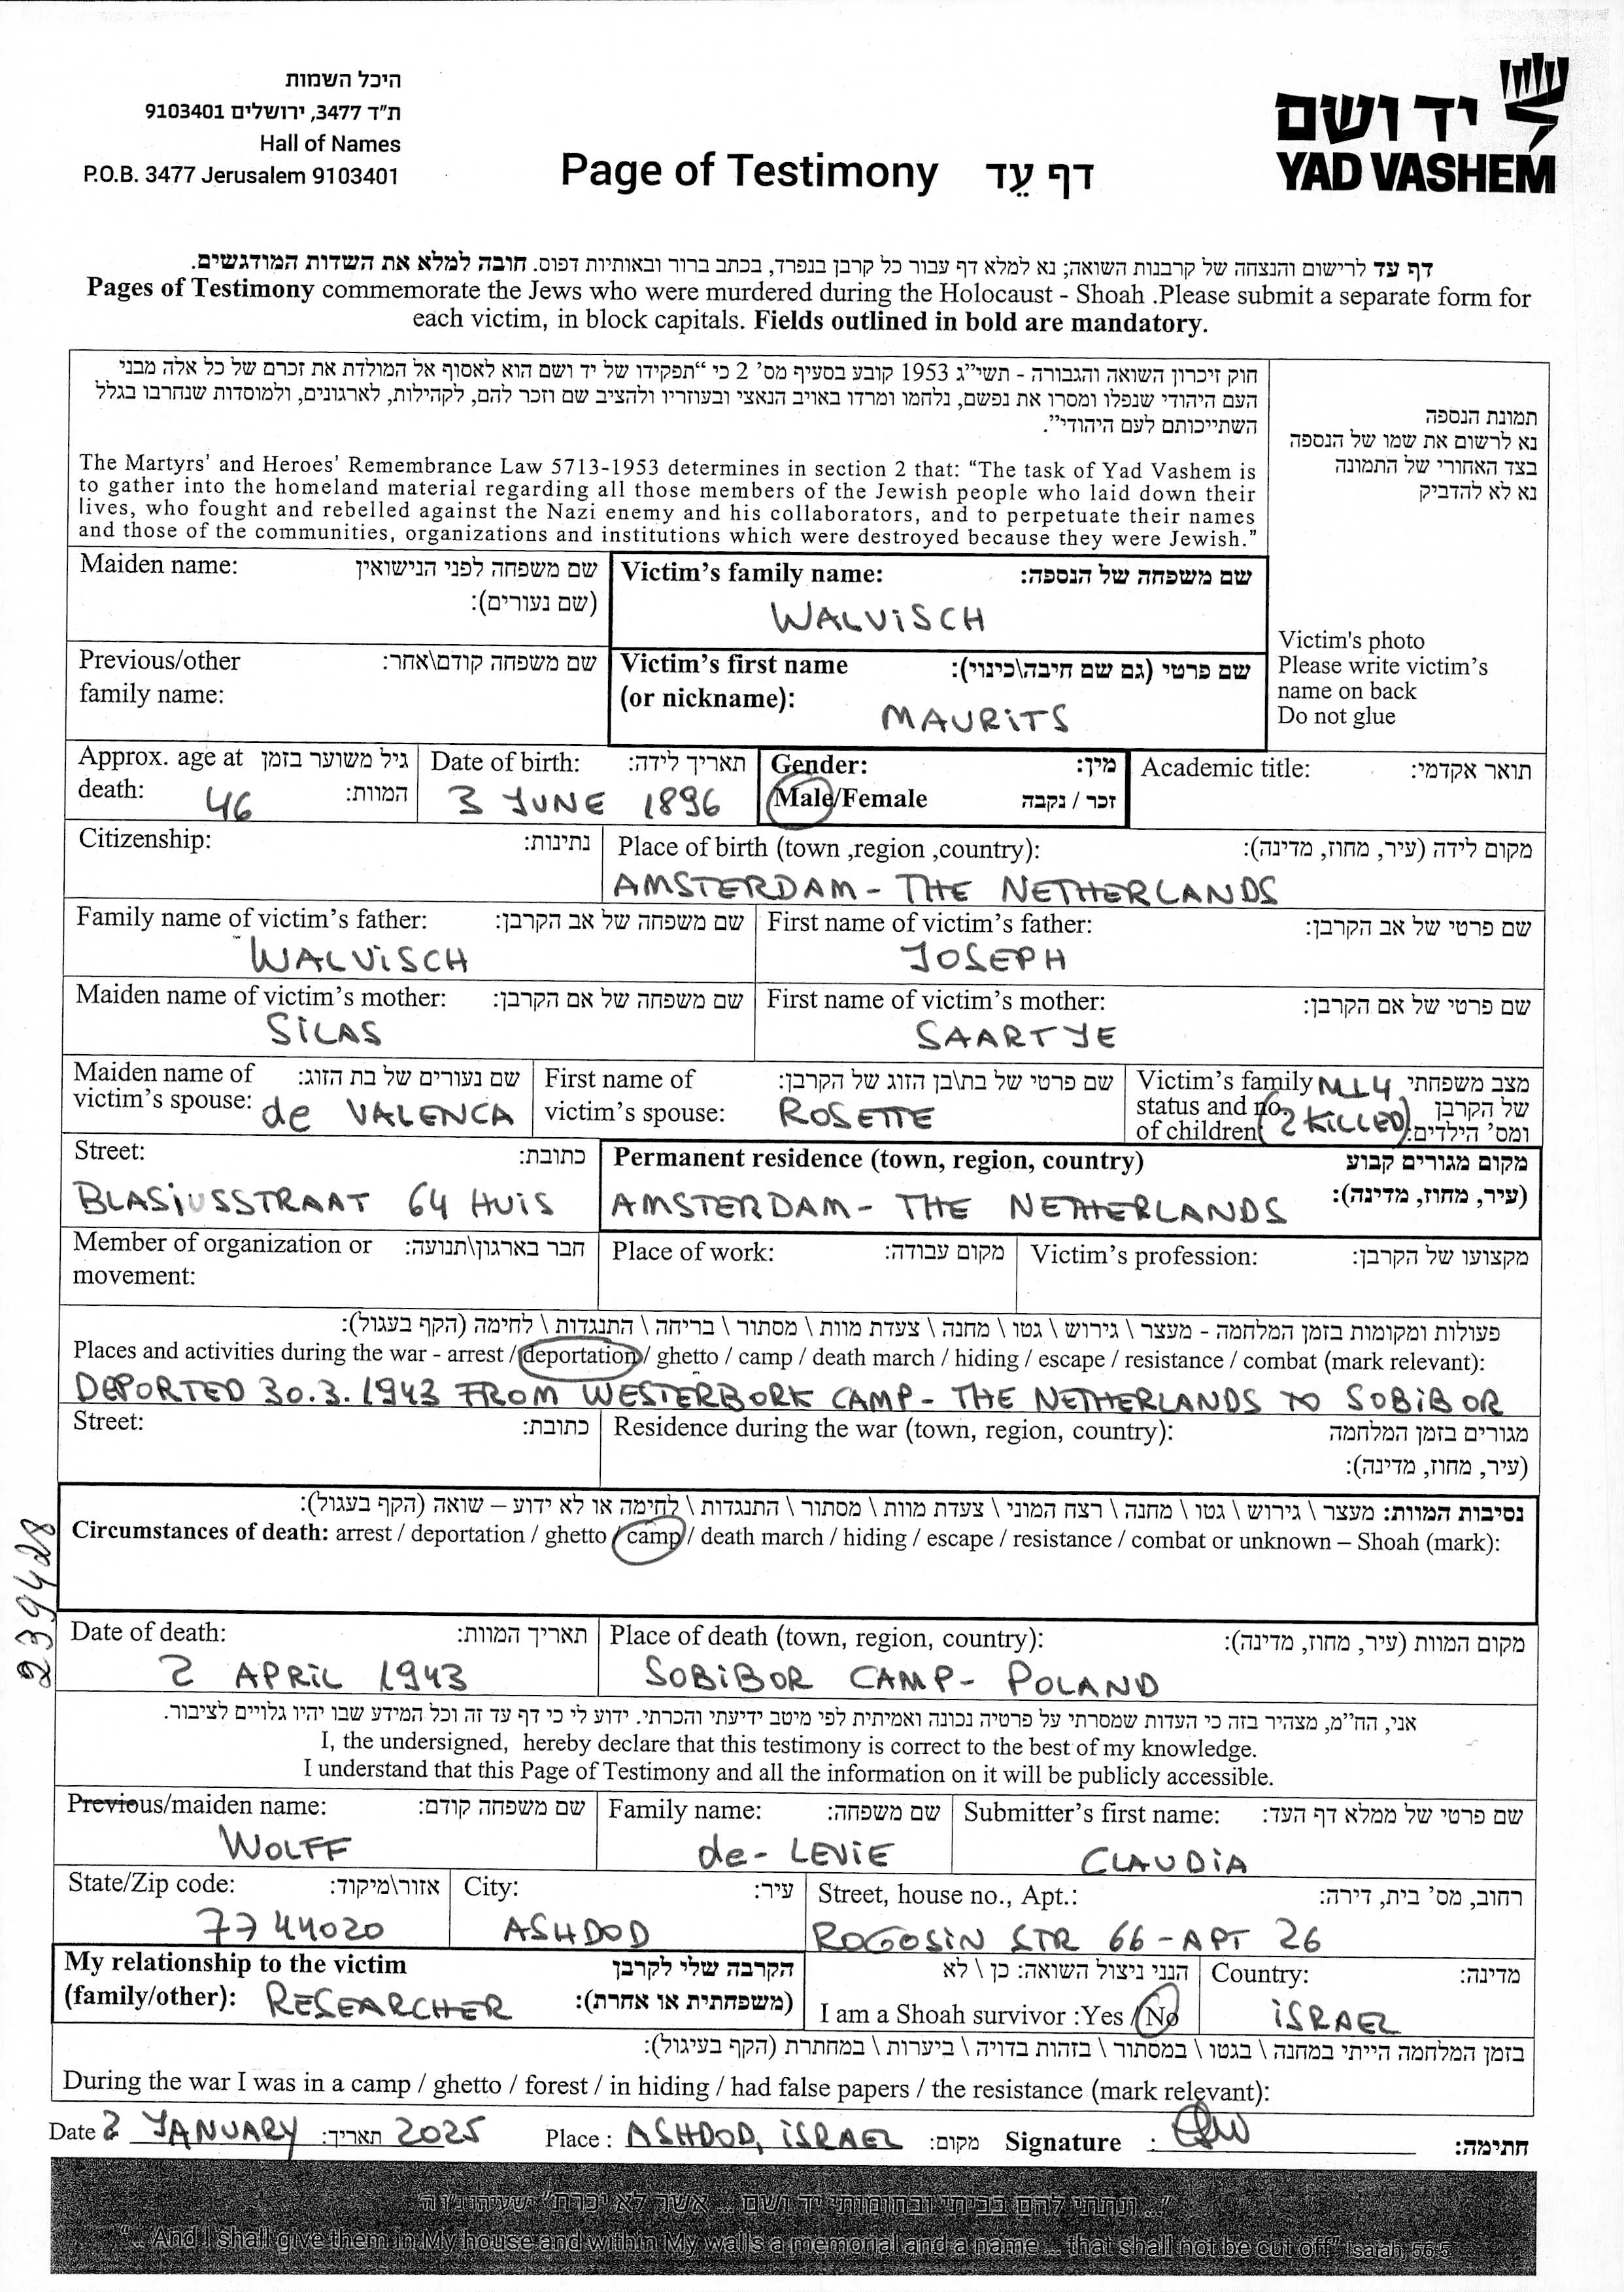 היכל השמות
ת"ד 3477, ירושלים 9103401
Hall of Names
P.O.B. 3477 Jerusalem 9103401
Page of Testimony דף עֵד
יד ושם
YAD VASHEM
דף עד לרישום והנצחה של קרבנות השואה; נא למלא דף עבור כל קרבן בנפרד, בכתב ברור ובאותיות דפוס. חובה למלא את השדות המודגשים.
Pages of Testimony commemorate the Jews who were murdered during the Holocaust - Shoah .Please submit a separate form for
each victim, in block capitals. Fields outlined in bold are mandatory.
חוק זיכרון השואה והגבורה - תשי"ג 1953 קובע בסעיף מס' 2 כי "תפקידו של יד ושם הוא לאסוף אל המולדת את זכרם של כל אלה מבני
העם היהודי שנפלו ומסרו את נפשם, נלחמו ומרדו באויב הנאצי ובעוזריו ולהציב שם וזכר להם, לקהילות, לארגונים, ולמוסדות שנחרבו בגלל
השתייכותם לעם היהודי".
The Martyrs' and Heroes' Remembrance Law 5713-1953 determines in section 2 that: "The task of Yad Vashem is
to gather into the homeland material regarding all those members of the Jewish people who laid down their
lives, who fought and rebelled against the Nazi enemy and his collaborators, and to perpetuate their names
and those of the communities, organizations and institutions which were destroyed because they were Jewish."
תמונת הנספה
נא לרשום את שמו של הנספה
בצד האחורי של התמונה
נא לא להדביק
Victim's photo
Please write victim's
name on back
Do not glue
Maiden name: שם משפחה לפני הנישואין
(שם נעורים):
Victim's family name: שם משפחה של הנספה:
WALVISCH
Previous/other שם משפחה קודם\אחר:
family name:
Victim's first name שם פרטי (גם שם חיבה\כינוי):
(or nickname):
MAURITS
Approx. age at גיל משוער בזמן
death: 46 המוות:
Date of birth: תאריך לידה:
3 JUNE 1896
Gender: מין:
Male/Female זכר / נקבה
Academic title: תואר אקדמי:
Citizenship: נתינות:
Place of birth (town ,region ,country): מקום לידה (עיר, מחוז, מדינה):
AMSTERDAM - THE NETHERLANDS
Family name of victim's father: שם משפחה של אב הקרבן:
WALVISCH
First name of victim's father: שם פרטי של אב הקרבן:
JOSEPH
Maiden name of victim's mother: שם משפחה של אם הקרבן:
SILAS
First name of victim's mother: שם פרטי של אם הקרבן:
SAARTJE
Maiden name of שם נעורים של בת הזוג:
victim's spouse: de VALENCA
First name of שם פרטי של בת\בן הזוג של הקרבן:
victim's spouse: ROSETTE
Victim's family M+4 מצב משפחתי
status and no. של הקרבן
of children (2 KILLED) ומס' הילדים:
Street: כתובת:
BLASIUSSTRAAT 64 HUIS
Permanent residence (town, region, country) מקום מגורים קבוע
AMSTERDAM - THE NETHERLANDS (עיר, מחוז, מדינה):
Member of organization or חבר בארגון\תנועה:
movement:
Place of work: מקום עבודה:
Victim's profession: מקצועו של הקרבן:
פעולות ומקומות בזמן המלחמה - מעצר \ גירוש \ גטו \ מחנה \ צעדת מוות \ מסתור \ בריחה \ התנגדות \ לחימה (הקף בעגול):
Places and activities during the war - arrest / deportation / ghetto / camp / death march / hiding / escape / resistance / combat (mark relevant):
DEPORTED 30.3.1943 FROM WESTERBORK CAMP - THE NETHERLANDS TO SOBIBOR
Street: כתובת:
Residence during the war (town, region, country): מגורים בזמן המלחמה
(עיר, מחוז, מדינה):
נסיבות המוות: מעצר \ גירוש \ גטו \ מחנה \ רצח המוני \ צעדת מוות \ מסתור \ התנגדות \ לחימה או לא ידוע – שואה (הקף בעגול):
Circumstances of death: arrest / deportation / ghetto / camp / death march / hiding / escape / resistance / combat or unknown – Shoah (mark):
239428
Date of death: תאריך המוות:
2 APRIL 1943
Place of death (town, region, country): מקום המוות (עיר, מחוז, מדינה):
SOBIBOR CAMP - POLAND
אני, הח"מ, מצהיר בזה כי העדות שמסרתי על פרטיה נכונה ואמיתית לפי מיטב ידיעתי והכרתי. ידוע לי כי דף עד זה וכל המידע שבו יהיו גלויים לציבור.
I, the undersigned, hereby declare that this testimony is correct to the best of my knowledge.
I understand that this Page of Testimony and all the information on it will be publicly accessible.
Previous/maiden name: שם משפחה קודם:
WOLFF
Family name: שם משפחה:
de - LEVIE
Submitter's first name: שם פרטי של ממלא דף העד:
CLAUDIA
State/Zip code: אזור\מיקוד:
7744020
City: עיר:
ASHDOD
Street, house no., Apt.: רחוב, מס' בית, דירה:
ROGOSIN STR 66 - APT 26
My relationship to the victim הקרבה שלי לקרבן
(family/other): RESEARCHER (משפחתית או אחרת):
הנני ניצול השואה: כן \ לא
I am a Shoah survivor :Yes / No
Country: מדינה:
ISRAEL
בזמן המלחמה הייתי במחנה \ בגטו \ במסתור \ בזהות בדויה \ ביערות \ במחתרת (הקף בעיגול):
During the war I was in a camp / ghetto / forest / in hiding / had false papers / the resistance (mark relevant):
Date 2 JANUARY תאריך: 2025 Place : ASHDOD, ISRAEL מקום: Signature : חתימה:
"...ונתתי להם בביתי ובחומותי יד ושם... אשר לא יכרת" ישעיהו נ"ו ה
"...And I shall give them in My house and within My walls a memorial and a name... that shall not be cut off" Isaiah, 56:5